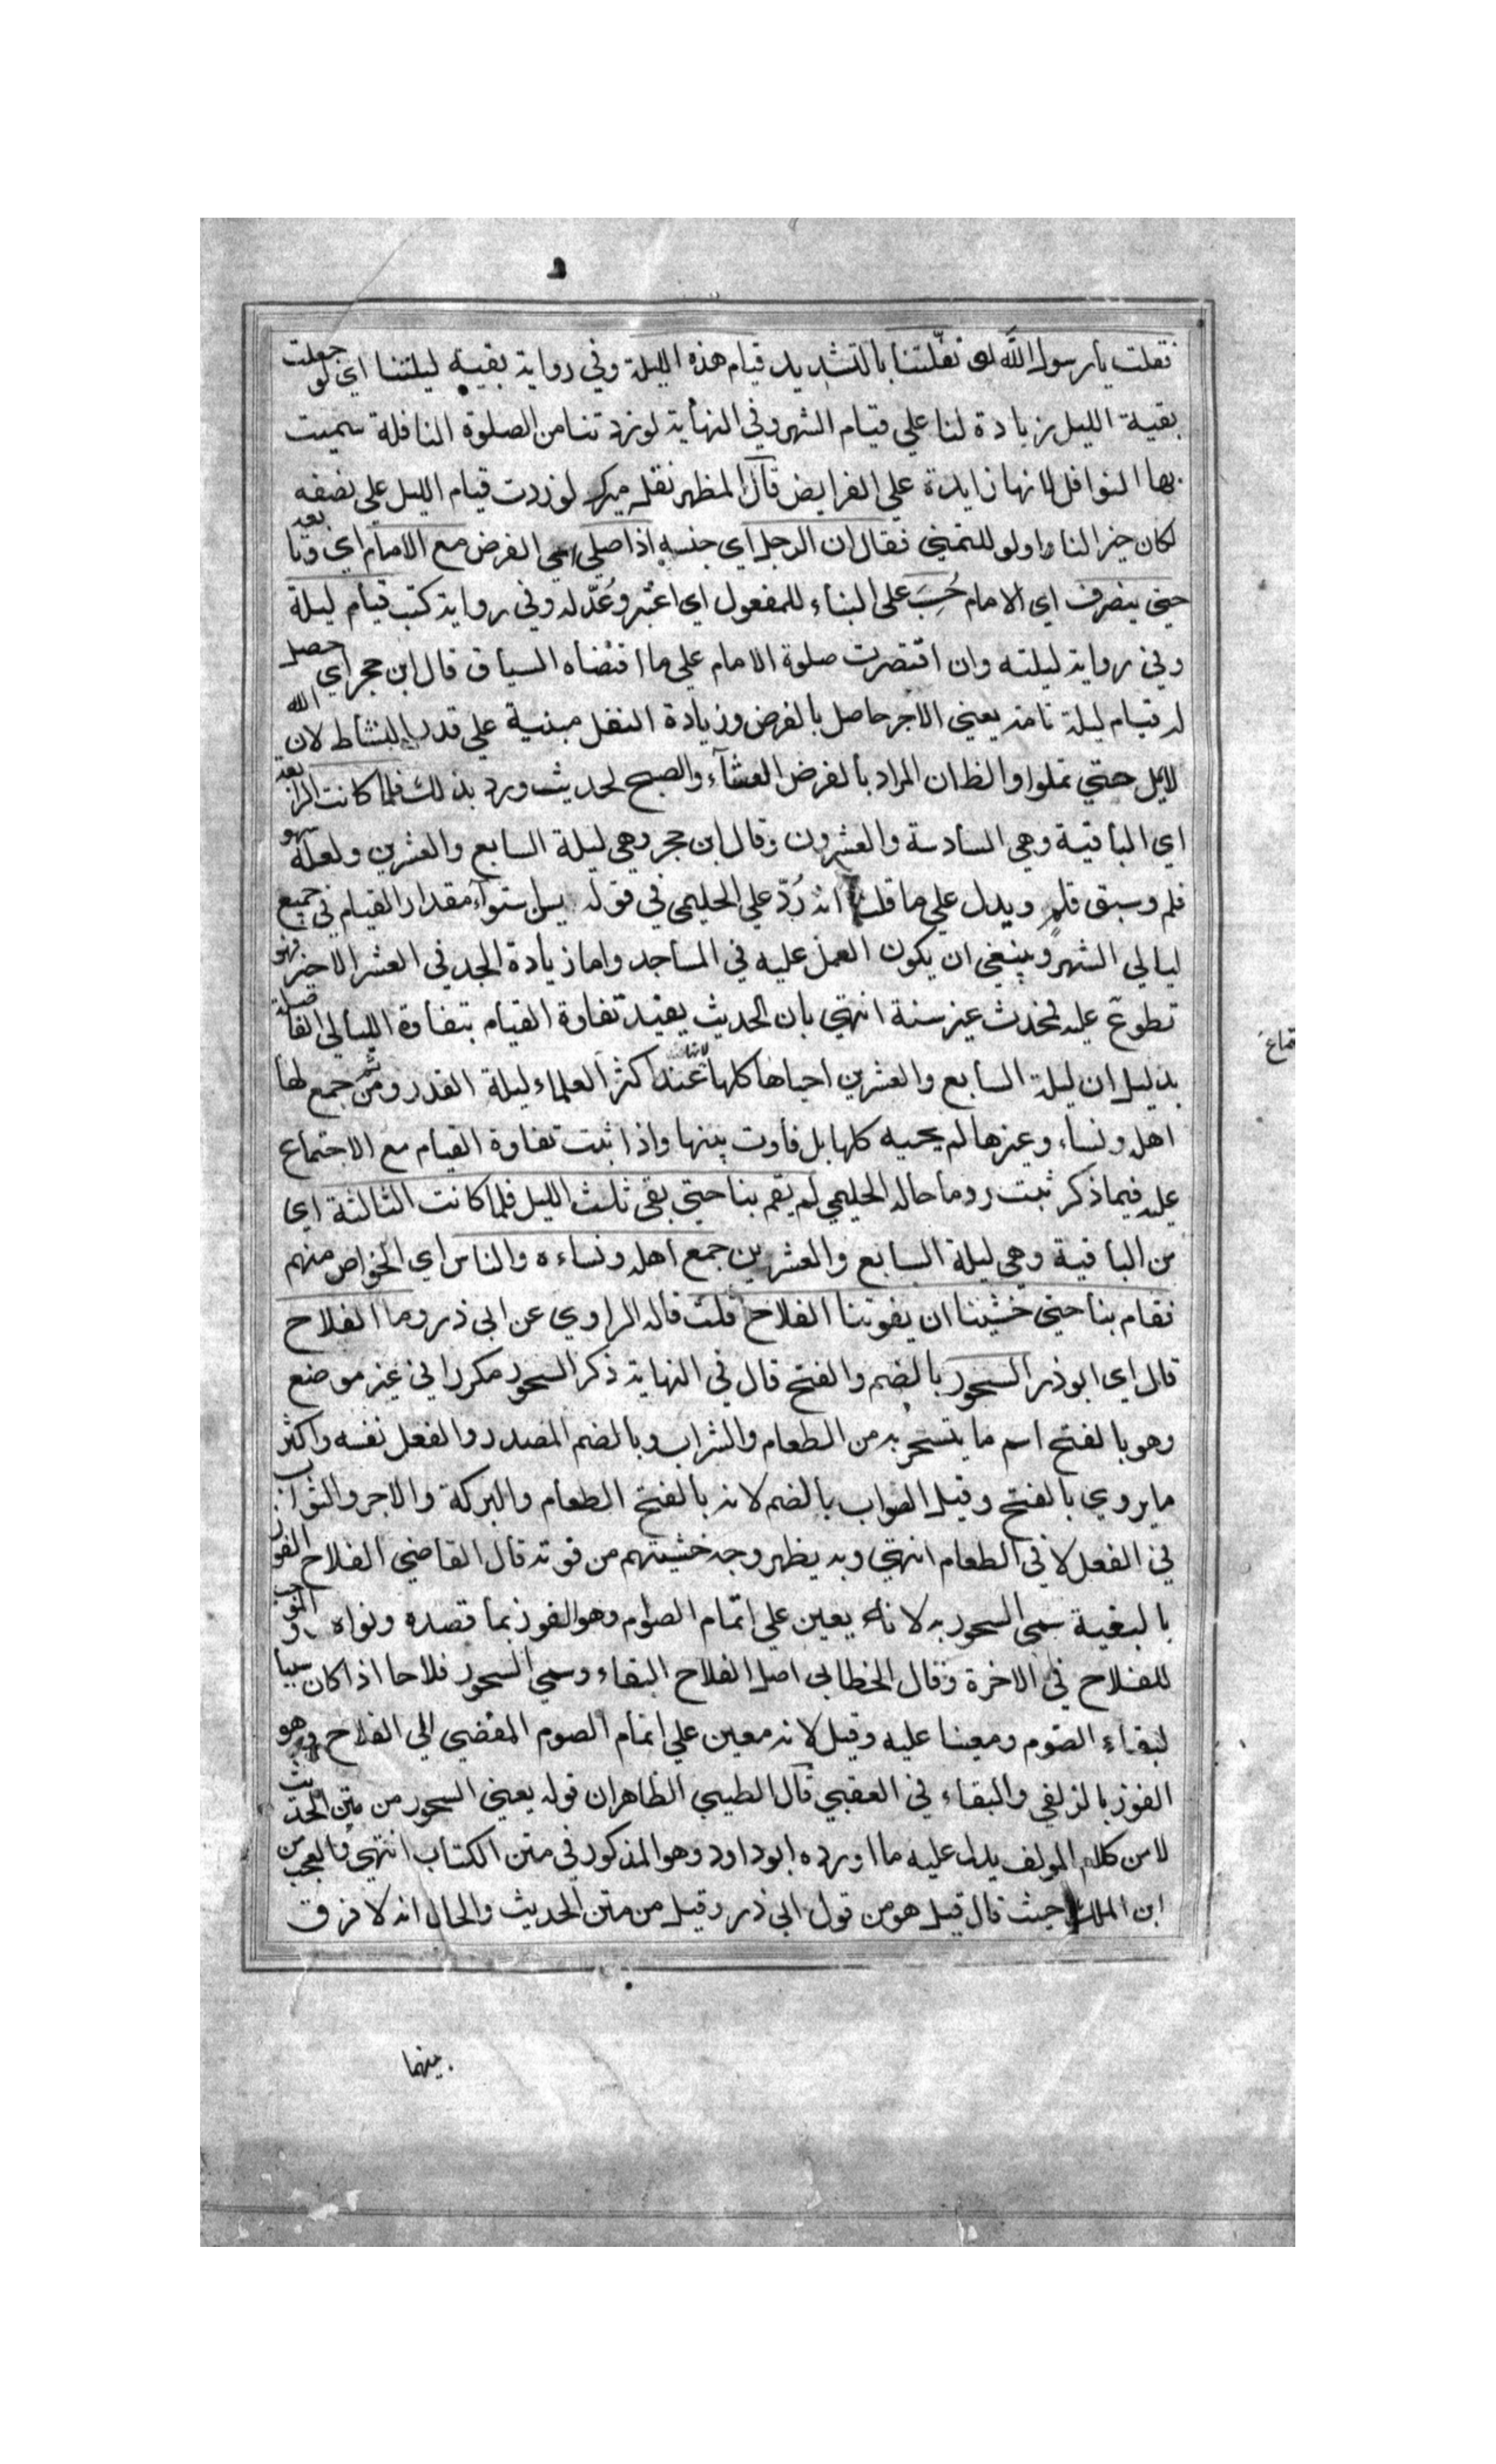 فقلت يا رسول الله لو نفّلتنا بالتشديد قيام هذه الليلة وفي رواية بقية ليلتنا اي لو جعلت
بقية الليل زيادة لنا علي قيام الشهر وفي النهاية لو زدتنا من الصلوة النافلة سميت
بها النوافل لانها زايدة علي الفرايض قال المظهر نقله ميرك لو زدت قيام الليل علي نصفه
لكان خيرا لنا ولو للتمني فقال ان الرجل اي جنسه اذا صلي اي الفرض مع الامام اي وتابعه
حتي ينصرف اي الامام حُسِبَ علي البناء للمفعول اي اعتبر وعُدّ له وفي رواية كتب قيام ليلة
وفي رواية ليلته وان اقتصرت صلوة الامام علي ما اقتضاه السياق قال ابن حجر اي حصل
له قيام ليلة تامة يعني الاجر حاصل بالفرض وزيادة النفل مبنية علي قدر النشاط لان الله
لا يمل حتي تملوا والظ ان المراد بالفرض العشاء والصبح لحديث ورد بذلك فلما كانت الرابعة
اي الباقية وهي السادسة والعشرون وقال ابن حجر وهي ليلة السابع والعشرين ولعله سهو
قلم وسبق قلم ويدل علي ما قلنا انه رُدّ علي الحليمي في قوله يسن استواء مقدار القيام في جميع
ليالي الشهر وينبغي ان يكون العمل عليه في المساجد واما زيادة الجد في العشر الاخير فهو
تطوع عليه فمحدث غير سنة انتهي بان الحديث يفيد تفاوة القيام بتفاوة الليالي الفاضلة
بدليل ان ليلة السابع والعشرين احياها كلها لانها عند اكثر العلماء ليلة القدر ومن ثم جمع لها
اهله ونساءه وغيرها لم يحيه كلها بل فاوت بينها واذا ثبت تفاوة القيام مع الاجتماع
عليه فيما ذكر ثبت رد ما حاله الحليمي لم يقم بنا حتي بقي ثلث الليل فلما كانت الثالثة اي
من الباقية وهي ليلة السابع والعشرين جمع اهله ونساءه والناس اي الخواص منهم
فقام بنا حتي خشينا ان يفوتنا الفلاح قلت قاله الراوي عن ابي ذر وما الفلاح
قال اي ابو ذر السحور بالضم والفتح قال في النهاية ذكر السحور مكررا في غير موضع
وهو بالفتح اسم ما يتسحر به من الطعام والشراب وبالضم المصدر والفعل نفسه واكثر
ما يروي بالفتح وقيل الصواب بالضم لانه بالفتح الطعام والبركة والاجر والثواب
في الفعل لا في الطعام انتهي وبه يظهر وجه خشيتهم من فوته قال القاضي الفلاح الفوز
بالبغية سمي السحور به لانه يعين علي اتمام الصوم وهو الفوز بما قصده ونواه والموجب
للفلاح في الاخرة وقال الخطابي اصل الفلاح البقاء وسمي السحور فلاحا اذا كان سببا
لبقاء الصوم ومعينا عليه وقيل لانه معين علي اتمام الصوم المفضي الي الفلاح وهو
الفوز بالزلفي والبقاء في العقبي قال الطيبي الظاهر ان قوله يعني السحور من متن الحديث
لا من كلام المولف يدل عليه ما اورده ابو داود وهو المذكور في متن الكتاب انتهي فالعجب من
ابن الملك حيث قال قيل هو من قول ابي ذر وقيل من متن الحديث والحال انه لا فرق
بينهما